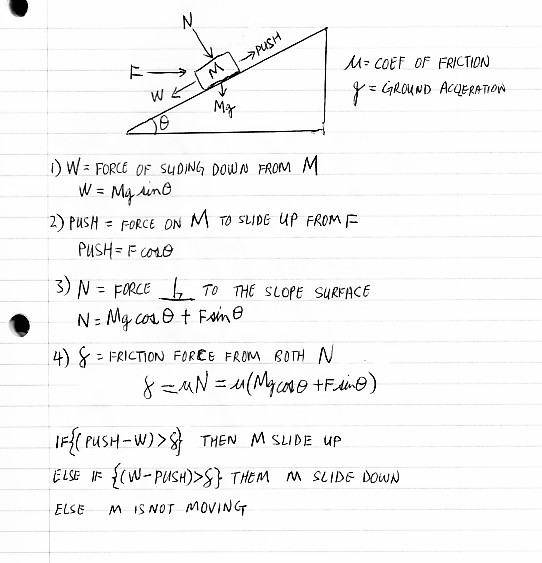 N
PUSH
F
M
W
Mg
θ
μ = COEF OF FRICTION
g = GROUND ACQERATION
1) W = FORCE OF SLIDING DOWN FROM M
W = Mg sinθ
2) PUSH = FORCE ON M TO SLIDE UP FROM F
PUSH = F cosθ
3) N = FORCE ⊥ TO THE SLOPE SURFACE
N = Mg cosθ + F sinθ
4) f = FRICTION FORCE FROM BOTH N
f = μN = μ(Mg cosθ + F sinθ)
IF{(PUSH-W)>f} THEN M SLIDE UP
ELSE IF {(W-PUSH)>f} THEM M SLIDE DOWN
ELSE M IS NOT MOVING